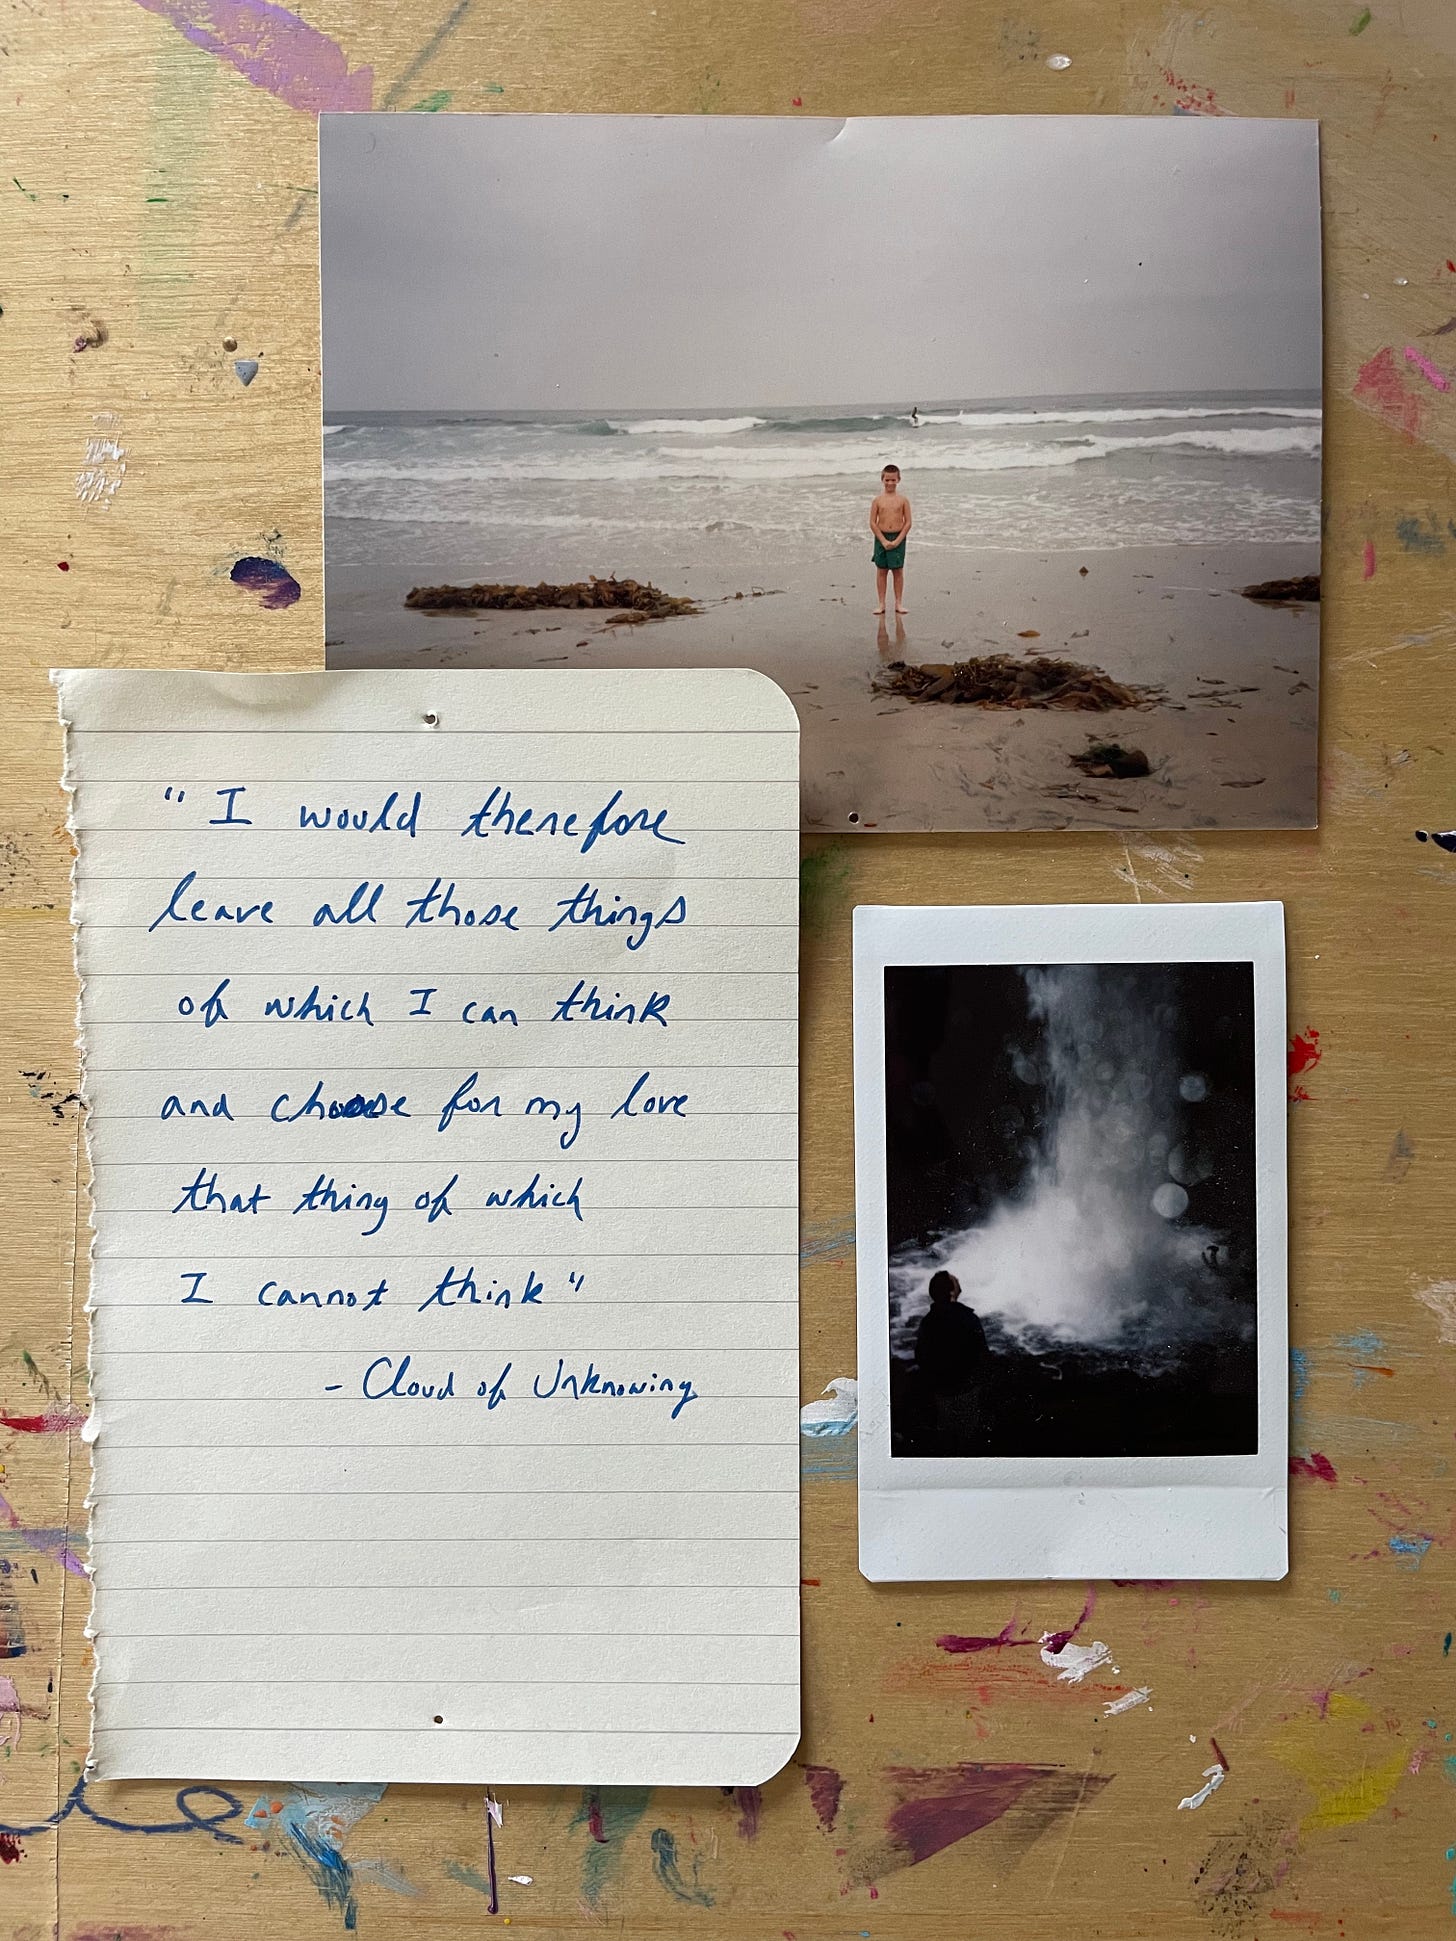 "I would therefore
leave all those things
of which I can think
and choose for my love
that thing of which
I cannot think"
- Cloud of Unknowing